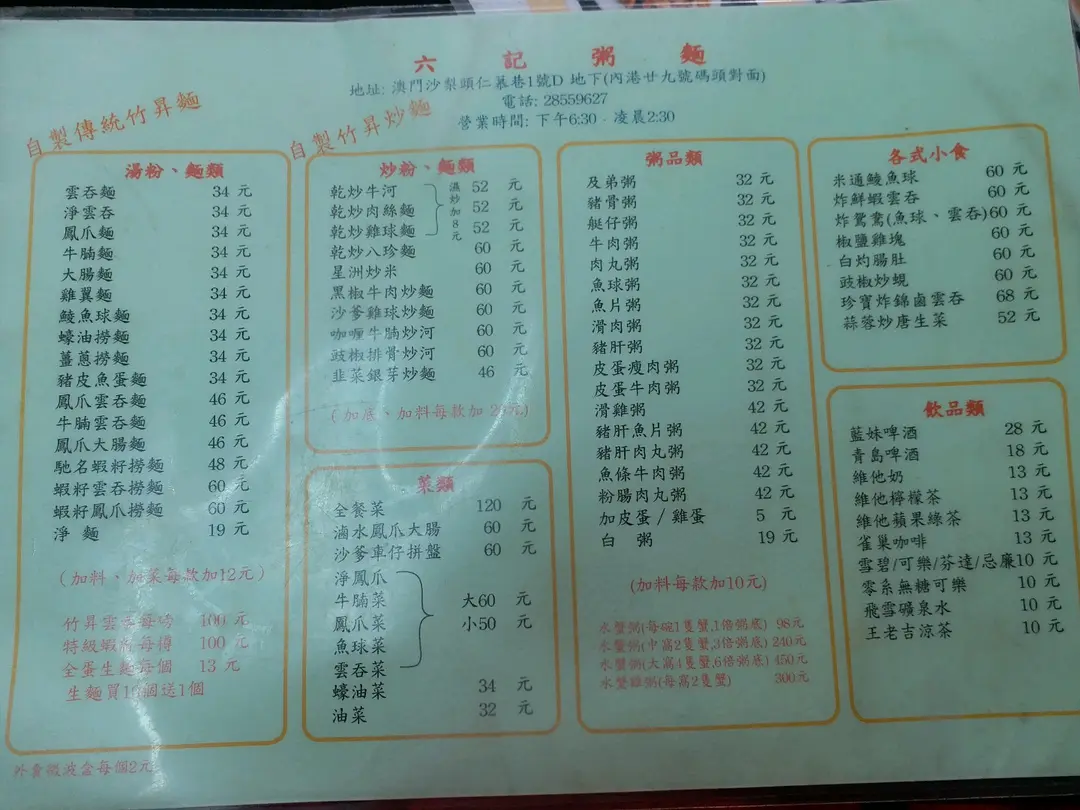 六記粥麵
地址: 澳門沙梨頭仁慕巷1號D 地下(內港廿九號碼頭對面)
電話: 28559627
營業時間: 下午6:30 - 凌晨2:30
自製傳統竹昇麵
湯粉、麵類
雲吞麵 34 元
淨雲吞 34 元
鳳爪麵 34 元
牛腩麵 34 元
大腸麵 34 元
雞翼麵 34 元
鯪魚球麵 34 元
蠔油撈麵 34 元
薑蔥撈麵 34 元
豬皮魚蛋麵 34 元
鳳爪雲吞麵 46 元
牛腩雲吞麵 46 元
鳳爪大腸麵 46 元
馳名蝦籽撈麵 48 元
蝦籽雲吞撈麵 60 元
蝦籽鳳爪撈麵 60 元
淨 麵 19 元
(加料、加菜每款加12元)
竹昇雲吞每磅 100 元
特級蝦籽每樽 100 元
全蛋生麵每個 13 元
生麵買10個送1個
外賣微波盒每個2元
自製竹昇炒麵
炒粉、麵類
乾炒牛河 52 元
乾炒肉絲麵 52 元
乾炒雞球麵 52 元
濕炒加8元
乾炒八珍麵 60 元
星洲炒米 60 元
黑椒牛肉炒麵 60 元
沙爹雞球炒麵 60 元
咖喱牛腩炒河 60 元
豉椒排骨炒河 60 元
韭菜銀芽炒麵 46 元
(加底、加料每款加 元)
菜類
全餐菜 120 元
滷水鳳爪大腸 60 元
沙爹車仔拼盤 60 元
淨鳳爪
牛腩菜 大60 元
鳳爪菜 小50 元
魚球菜
雲吞菜
蠔油菜 34 元
油菜 32 元
粥品類
及弟粥 32 元
豬骨粥 32 元
艇仔粥 32 元
牛肉粥 32 元
肉丸粥 32 元
魚球粥 32 元
魚片粥 32 元
滑肉粥 32 元
豬肝粥 32 元
皮蛋瘦肉粥 32 元
皮蛋牛肉粥 32 元
滑雞粥 42 元
豬肝魚片粥 42 元
豬肝肉丸粥 42 元
魚條牛肉粥 42 元
粉腸肉丸粥 42 元
加皮蛋/雞蛋 5 元
白 粥 19 元
(加料每款加10元)
水蟹粥(每碗1隻蟹,1倍粥底) 98元
水蟹粥(中窩2隻蟹,3倍粥底) 240元
水蟹粥(大窩4隻蟹,6倍粥底) 450元
水蟹雞粥(每窩2隻蟹) 300元
各式小食
米通鯪魚球 60 元
炸鮮蝦雲吞 60 元
炸鴛鴦(魚球、雲吞)60 元
椒鹽雞塊 60 元
白灼腸肚 60 元
豉椒炒蜆 60 元
珍寶炸錦鹵雲吞 68 元
蒜蓉炒唐生菜 52 元
飲品類
藍妹啤酒 28 元
青島啤酒 18 元
維他奶 13 元
維他檸檬茶 13 元
維他蘋果綠茶 13 元
雀巢咖啡 13 元
雪碧/可樂/芬達/忌廉10 元
零系無糖可樂 10 元
飛雪礦泉水 10 元
王老吉涼茶 10 元